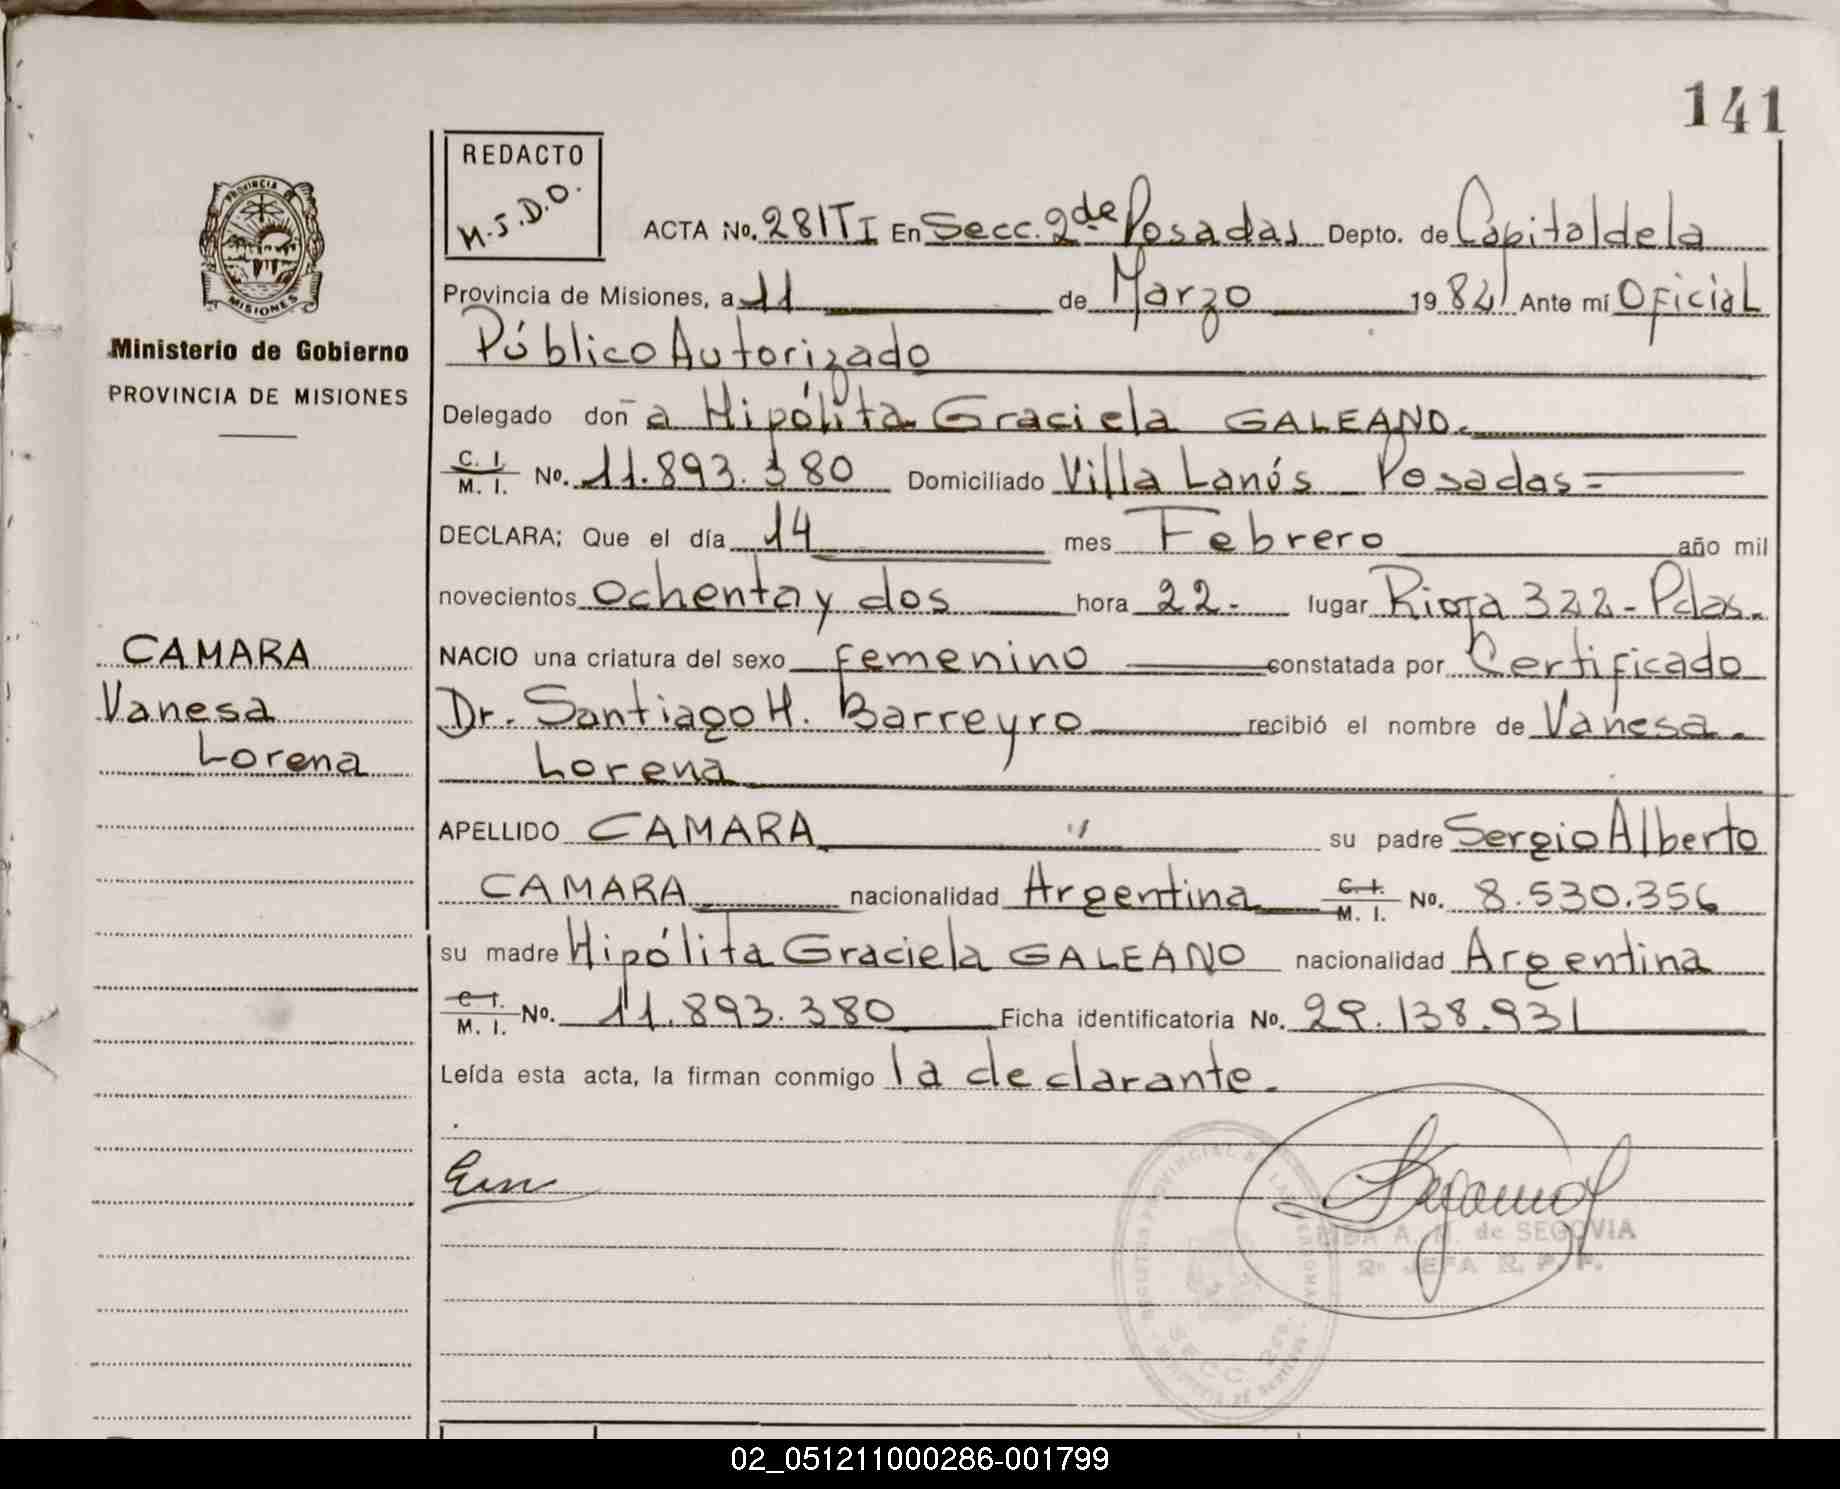 141
REDACTO
M.J.D.O.
PROVINCIA DE
MISIONES
Ministerio de Gobierno
PROVINCIA DE MISIONES
ACTA No. 281TI En Secc. 2de Posadas Depto. de Capital de la
Provincia de Misiones, a 11 de Marzo 1982 Ante mí Oficial
Público Autorizado
Delegado doña Hipólita Graciela GALEANO.
C. I. M. I. No. 11.893.380 Domiciliado Villa Lanús Posadas=
DECLARA; Que el día 14 mes Febrero año mil
novecientos Ochenta y dos hora 22.- lugar Rioja 322- Pdas.
CAMARA
Vanesa
Lorena
NACIO una criatura del sexo femenino constatada por Certificado
Dr. Santiago H. Barreyro recibió el nombre de Vanesa.
Lorena
APELLIDO CAMARA su padre Sergio Alberto
CAMARA nacionalidad Argentina C. I. M. I. No. 8.530.356
su madre Hipólita Graciela GALEANO nacionalidad Argentina
C. I. M. I. No. 11.893.380 Ficha identificatoria No. 29.138.931
Leída esta acta, la firman conmigo la declarante.
A. M. de SEGOVIA
JEFA R. P. P.
02_051211000286-001799